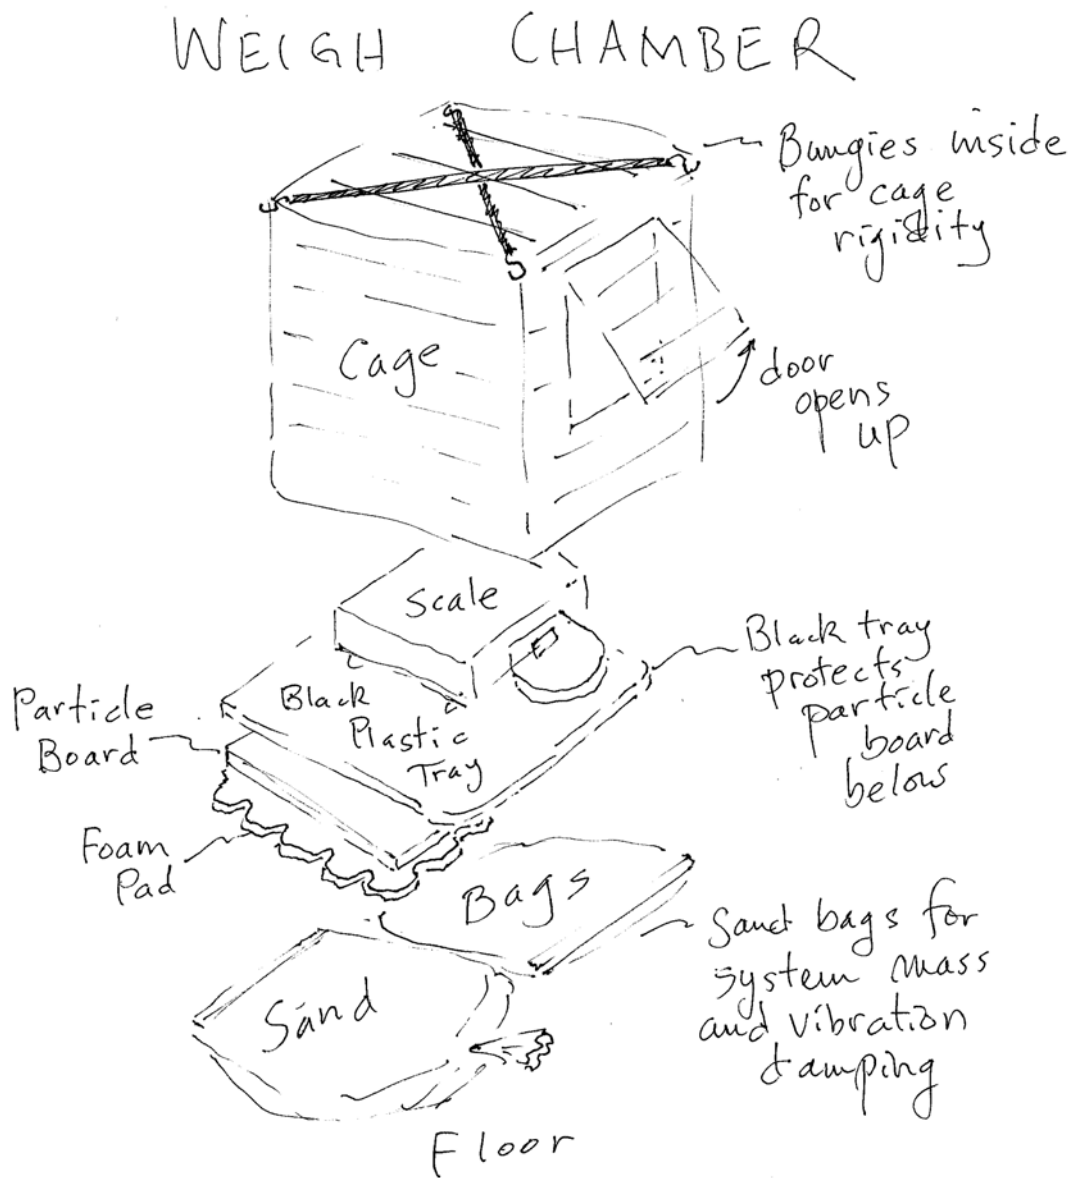 WEIGH CHAMBER
Bungies inside
for cage
rigidity
Cage
door
opens
up
Scale
Black tray
protects
particle
board
below
Black
Plastic
Tray
Particle
Board
Foam
Pad
Bags
Sand bags for
system mass
and vibration
damping
Sand
Floor